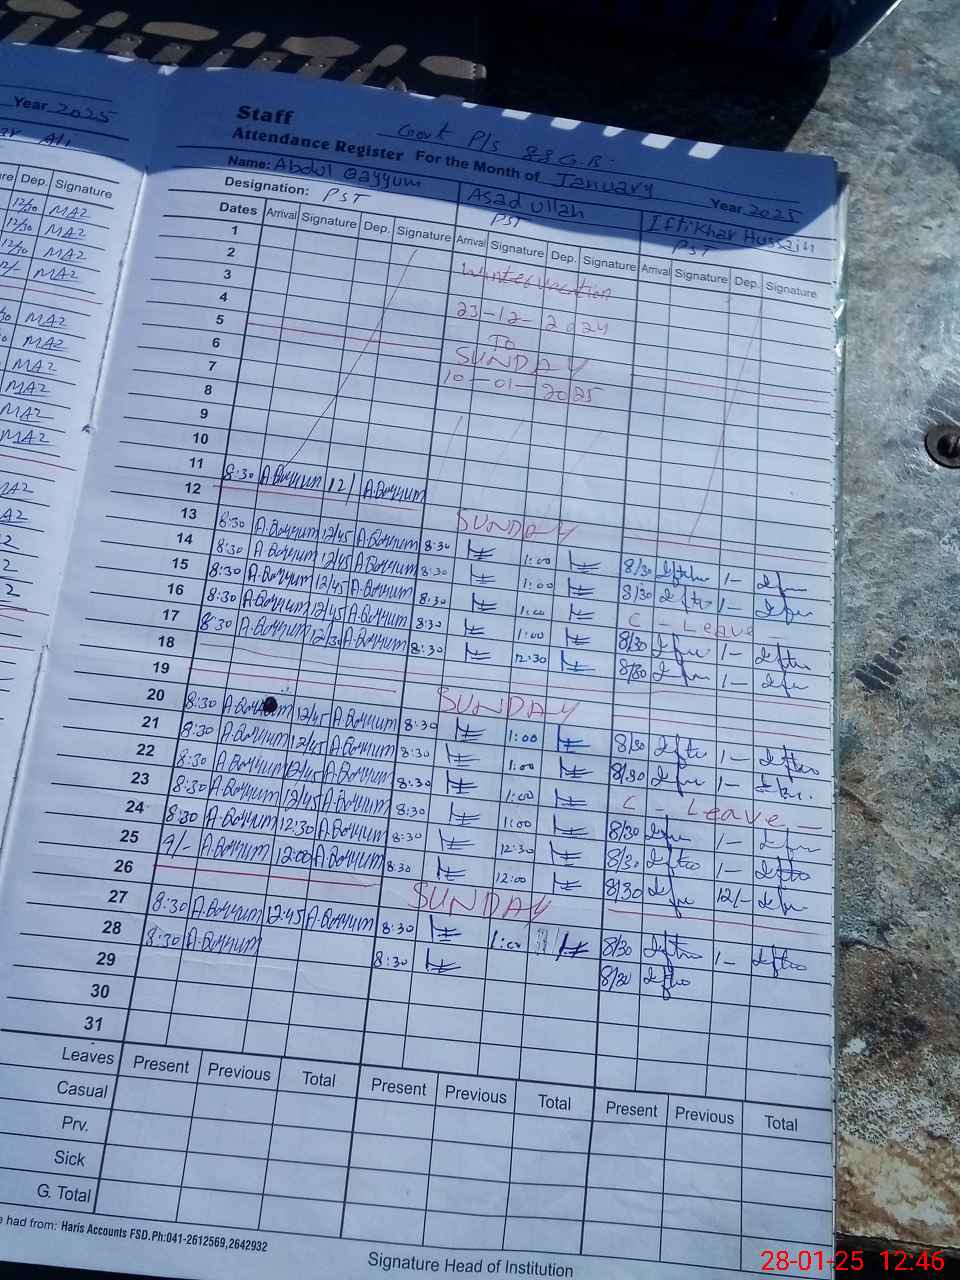 Year 2025
Ali
Dep. Signature
12/30 MAZ
12/30 MAZ
12/30 MAZ
MAZ
MAZ
MAZ
MAZ
MAZ
MAZ
MAZ
Staff
Govt P/S 88 G.B.
Attendance Register For the Month of January Year 2025
Name: Abdul Qayyum Asad ullah Iftikhar Hussain
Designation: PST PST PST
Dates Arrival Signature Dep. Signature Arrival Signature Dep. Signature Arrival Signature Dep. Signature
1
2
3 Winter vacation
4
5 23-12-2024
6 To
7 SUNDAY
8 10-01-2025
9
10
11 8:30 A.Qayyum 12/ A.Qayyum
12 SUNDAY
13 8:30 A.Qayyum 12/45 A.Qayyum 8:30 1:00 8/30 1-
14 8:30 A.Qayyum 12/45 A.Qayyum 8:30 1:00 8/30 1-
15 8:30 A.Qayyum 12/45 A.Qayyum 8:30 1:00 C - Leave -
16 8:30 A.Qayyum 12/45 A.Qayyum 8:30 1:00 8/30 1-
17 8:30 A.Qayyum 12/30 A.Qayyum 8:30 12:30 8/30 1-
18
19 SUNDAY
20 8:30 12/45 A.Qayyum 8:30 1:00 8/30 1-
21 8:30 A.Qayyum 12/45 A.Qayyum 8:30 1:00 8/30 1-
22 8:30 A.Qayyum 12/45 A.Qayyum 8:30 1:00 C - Leave -
23 8:30 A.Qayyum 12/45 A.Qayyum 8:30 1:00 8/30 1-
24 8:30 A.Qayyum 12:30 A.Qayyum 8:30 12:30 8/30 1-
25 9/- A.Qayyum 12:00 A.Qayyum 8:30 12:00 8/30 12/-
26 SUNDAY
27 8:30 A.Qayyum 12:45 A.Qayyum 8:30 1:00 8/30 1-
28 8:30 A.Qayyum 8:30 8/30
29
30
31
Leaves Present Previous Total Present Previous Total Present Previous Total
Casual
Prv.
Sick
G. Total
had from: Haris Accounts FSD.Ph:041-2612569,2642932
Signature Head of Institution
28-01-25 12:46